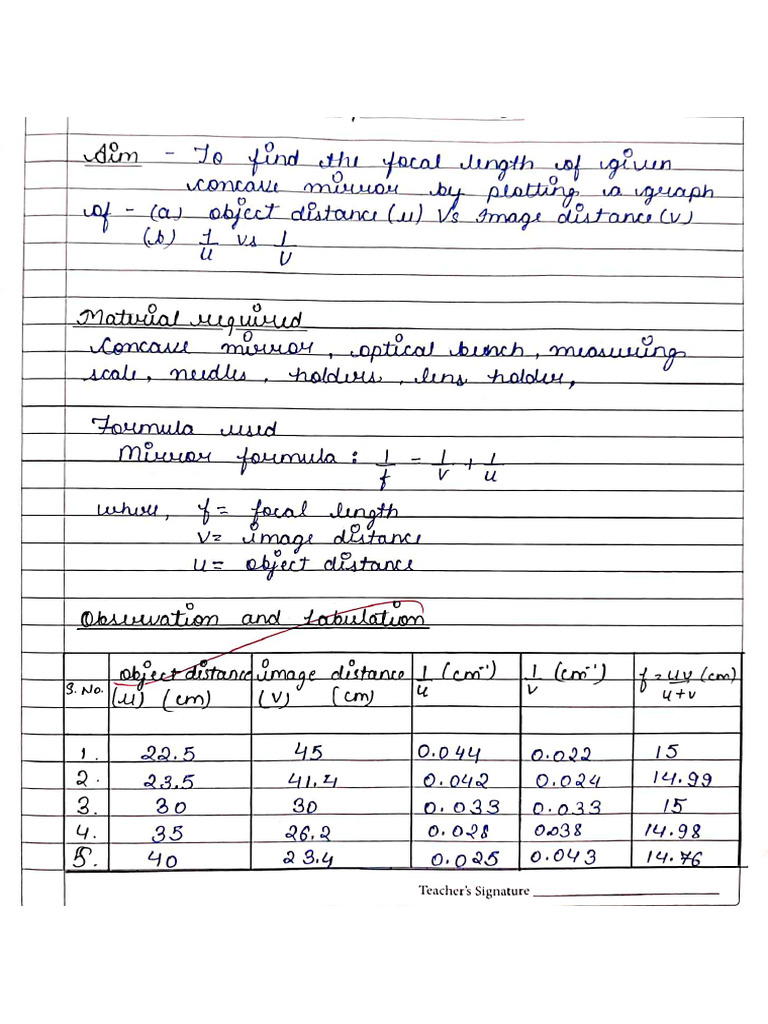 Aim - To find the focal length of given
concave mirror by plotting a graph
of - (a) object distance (u) Vs Image distance (v)
(b) 1/u vs 1/v
Material required
Concave mirror, optical bench, measuring
scale, needles, holders, lens holder,
Formula used
Mirror formula : 1/f = 1/v + 1/u
where, f = focal length
v = image distance
u = object distance
Observation and tabulation
S. No. object distance (u) (cm) image distance (v) (cm) 1/u (cm⁻¹) 1/v (cm⁻¹) f = uv/u+v (cm)
1. 22.5 45 0.044 0.022 15
2. 23.5 41.4 0.042 0.024 14.99
3. 30 30 0.033 0.033 15
4. 35 26.2 0.028 0.038 14.98
5. 40 23.4 0.025 0.043 14.76
Teacher's Signature